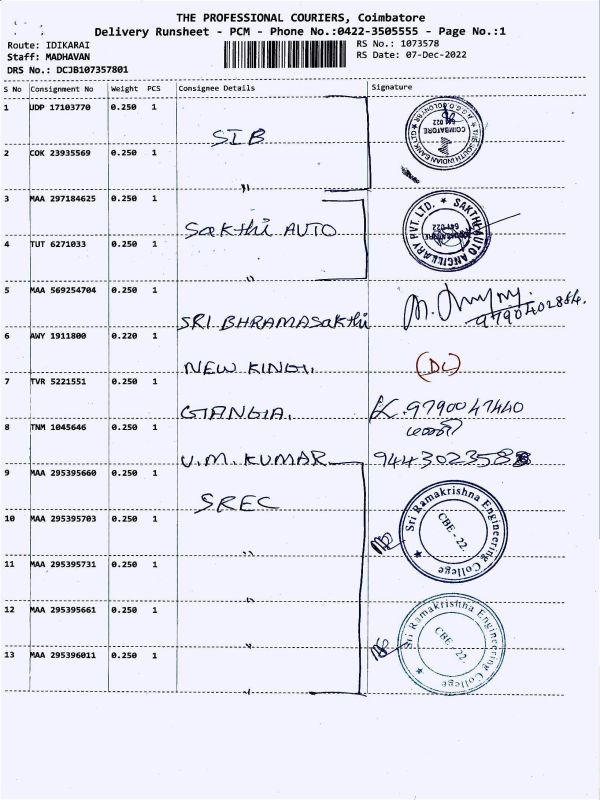 THE PROFESSIONAL COURIERS, Coimbatore
Delivery Runsheet - PCM - Phone No.:0422-3505555 - Page No.:1
Route: IDIKARAI
RS No.: 1073578
Staff: MADHAVAN
RS Date: 07-Dec-2022
DRS No.: DCJB107357801
S No Consignment No Weight PCS Consignee Details Signature
1 UDP 17103770 0.250 1 SIB
THE SOUTH INDIAN BANK
COIMBATORE
641 022
2 COK 23935569 0.250 1 "
3 MAA 297184625 0.250 1 Sakthi AUTO
SAKTHI AUTO ANCILLARY PVT. LTD.
641 022
4 TUT 6271033 0.250 1 "
5 MAA 569254704 0.250 1 SRI BHRAMASakthi
6 AWY 1911800 0.220 1 NEW KINGI. (DL)
7 TVR 5221551 0.250 1 GIANGIA. 9790047440
8 TNM 1045646 0.250 1 V.M. KUMAR
9 MAA 295395660 0.250 1 SREC
Sri Ramakrishna Engineering College
CBE - 22.
10 MAA 295395703 0.250 1 "
11 MAA 295395731 0.250 1 "
12 MAA 295395661 0.250 1 "
Sri Ramakrishna Engineering College
CBE - 22.
13 MAA 295396011 0.250 1 "